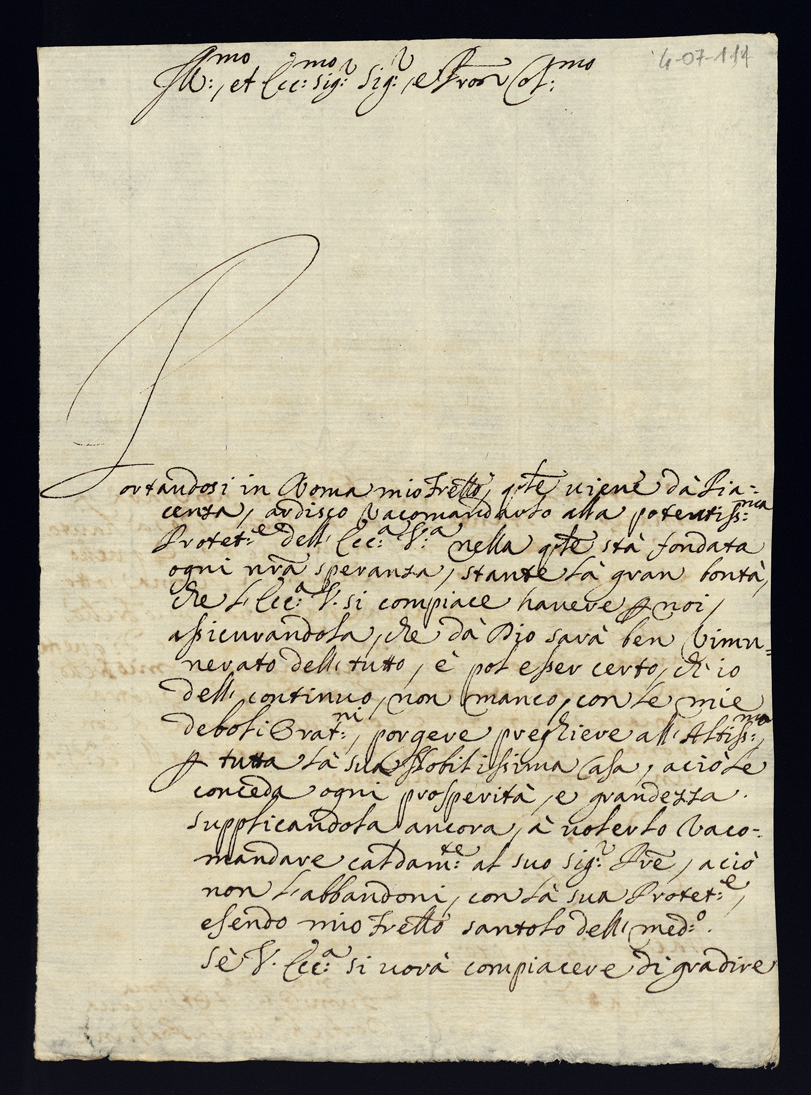 4-07-114
Ill:mo, et Ecc:mo Sig:r Sig:r, e Pron Col:mo
Portandosi in Roma mio Frello, qste uiene dà Pia=
cenza, ardisco racomandarlo alla potentiss:ma
Protet:e dell' Ecc:a V:a nella qste stà fondata
ogni nra speranza, stante là gran bontà,
che l'Ecc:a V. si compiace havere p noi,
assicurandola, che dà Dio sarà ben rimu=
nerato dell' tutto, è pol esser certo, ch' io
dell' continuo, non manco, con le mie
deboli Orat:ni, porgere preghiere all' Altiss:mo,
p tutta là sua Nobilissima Casa, aciò le
conceda ogni prosperità, e grandezza.
supplicandola ancora, à uolerlo raco=
mandare caldam:te al suo sig:r Pre, aciò
non l'abbandoni, con là sua Protet:e,
esendo mio Frello santolo dell' med:o.
sè V. Ecc:a si uorà compiacere di gradire